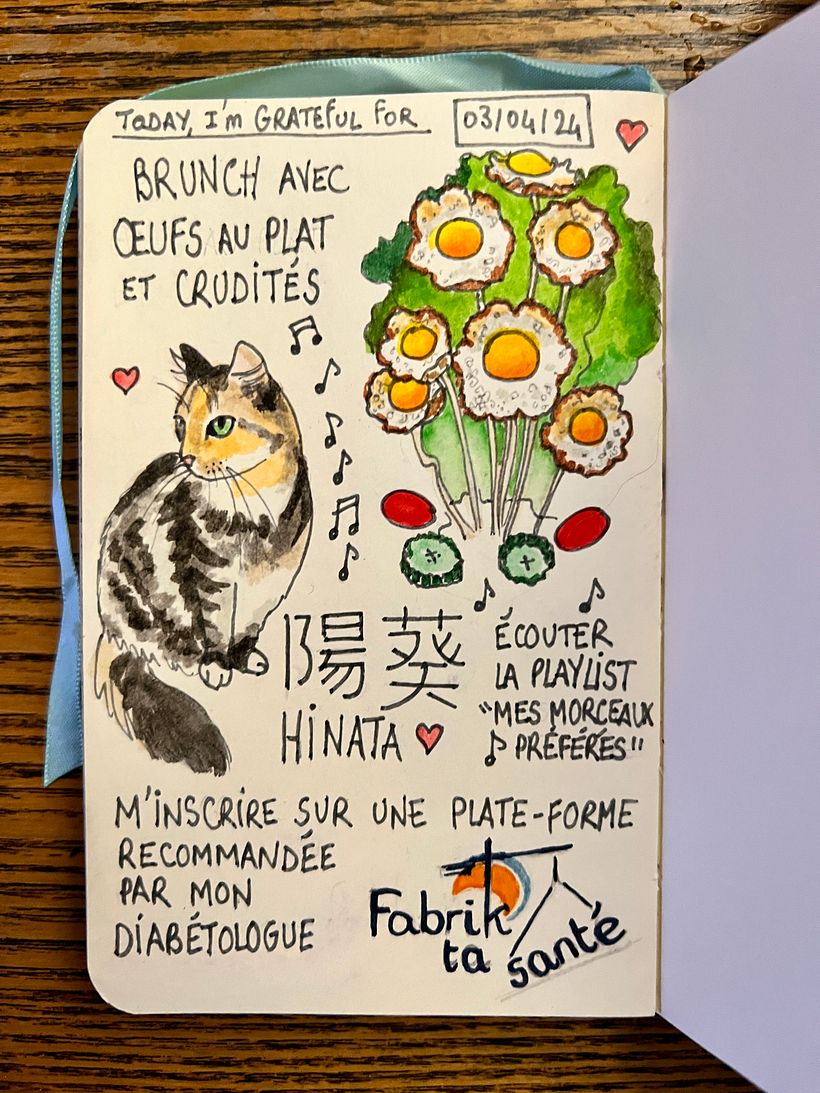 TODAY, I'm GRATEFUL FOR
03/04/24
BRUNCH AVEC
ŒUFS AU PLAT
ET CRUDITÉS
陽葵
HINATA
ÉCOUTER
LA PLAYLIST
"MES MORCEAUX
PRÉFÉRÉS"
M'INSCRIRE SUR UNE PLATE-FORME
RECOMMANDÉE
PAR MON
DIABÉTOLOGUE
Fabrik
ta santé